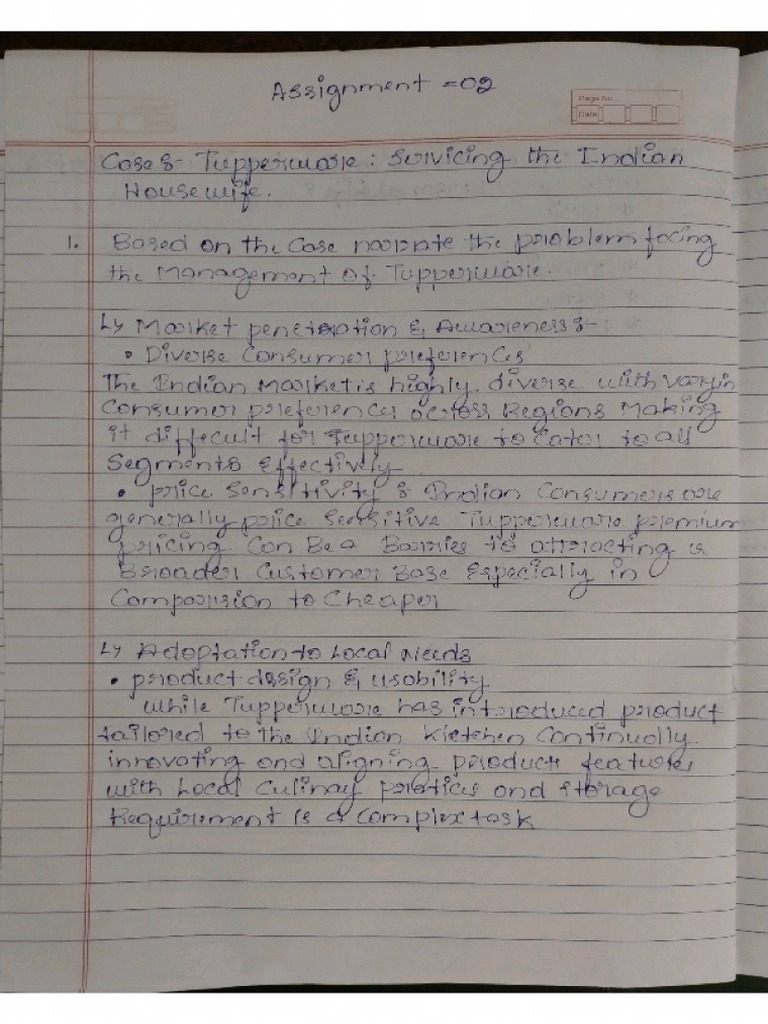 Assignment =02
Page No.
Date
Case:- Tupperware : Servicing the Indian
Housewife.
1. Based on the Case narrate the problem facing
the Management of Tupperware.
Ly Market penetration & Awareness:-
• Diverse Consumer preferences
The Indian Market is highly diverse with varyin
Consumer preferences across Regions Making
it diffecult for Tupperware to Cator to all
Segments Effectively
• price Sensitivity : Indian Consumers are
generally price Sensitive Tupperware premium
pricing Can Be a Barries to attracting a
Broader Customer Base Especially in
Comparision to Cheaper
Ly Adaptation to Local Needs
• product design & usability
while Tupperware has introduced product
tailored to the Indian Kietchen Continually
innovating and aligning product features
with Local Culinay pratics and storage
Requirement is a complex task